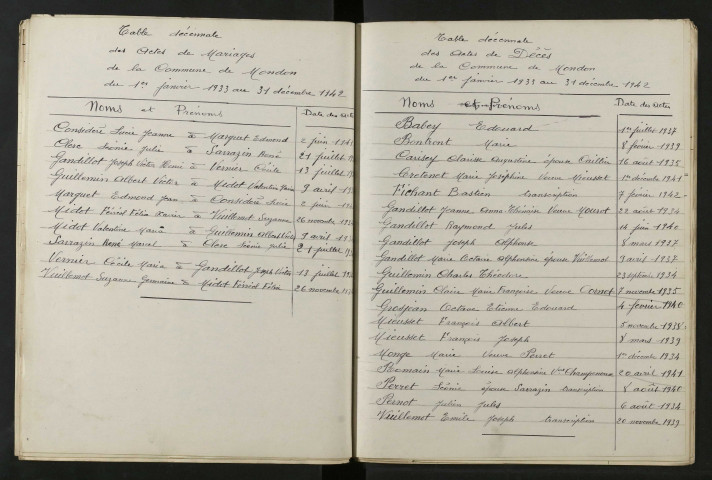 Table décennale
des Actes de Mariages
de la Commune de Mondon
du 1er janvier 1933 au 31 décembre 1942
Noms et Prénoms Date des Actes
Considère Lucie Jeanne à Marguet Edmond 2 juin
Clerc Irénée Julie à Sarrazin René 21 juillet
Gandillot Joseph Victor à Vernier Cécile 13 juillet
Guillemin Albert Victor à Midot Valentine 9 avril
Marguet Edmond Jean à Considère Lucie 2 juin
Midot Félix Xavier à Vuillemot Suzanne 26 novembre
Midot Valentine Maria à Guillemin Albert 9 avril
Sarrazin René Marcel à Clerc Irénée Julie 21 juillet
Vernier Cécile Maria à Gandillot Joseph Victor 13 juillet
Vuillemot Suzanne Germaine à Midot Félix 26 novembre
Table décennale
des Actes de Décès
de la Commune de Mondon
du 1er janvier 1933 au 31 décembre 1942
Noms et Prénoms Date des Actes
Babey Edouard 1er juillet 1937
Marie 8 février 1939
Augustine épouse 16 août 1935
Cretenet Marie Joséphine Veuve Mieusset 1er décembre 1941
Bastien transcription 7 février 1942
Gandillot Jeanne Anna Veuve 22 août 1934
Gandillot Raymond Jules 14 juin 1940
Gandillot Joseph Alphonse 8 mars 1937
Gandillot Marie Octavie Alphonsine épouse Vuillemot 9 avril 1937
Guillemin Charles Théodore 23 septembre 1934
Guillemin Claire Marie Françoise Veuve Cornet 7 novembre 1935
Grosjean Octave Etienne Edouard 4 février 1940
Mieusset François Albert 5 novembre 1938
Mieusset François Joseph 8 mars 1939
Monge Marie Veuve Perret 1er décembre 1934
Romain Marie Louise Alphonsine Vve 20 avril 1941
Perret Irénée épouse Sarrazin transcription 8 août 1940
Pernot Julien Jules 6 août 1934
Vuillemot Emile Joseph transcription 20 novembre 1939